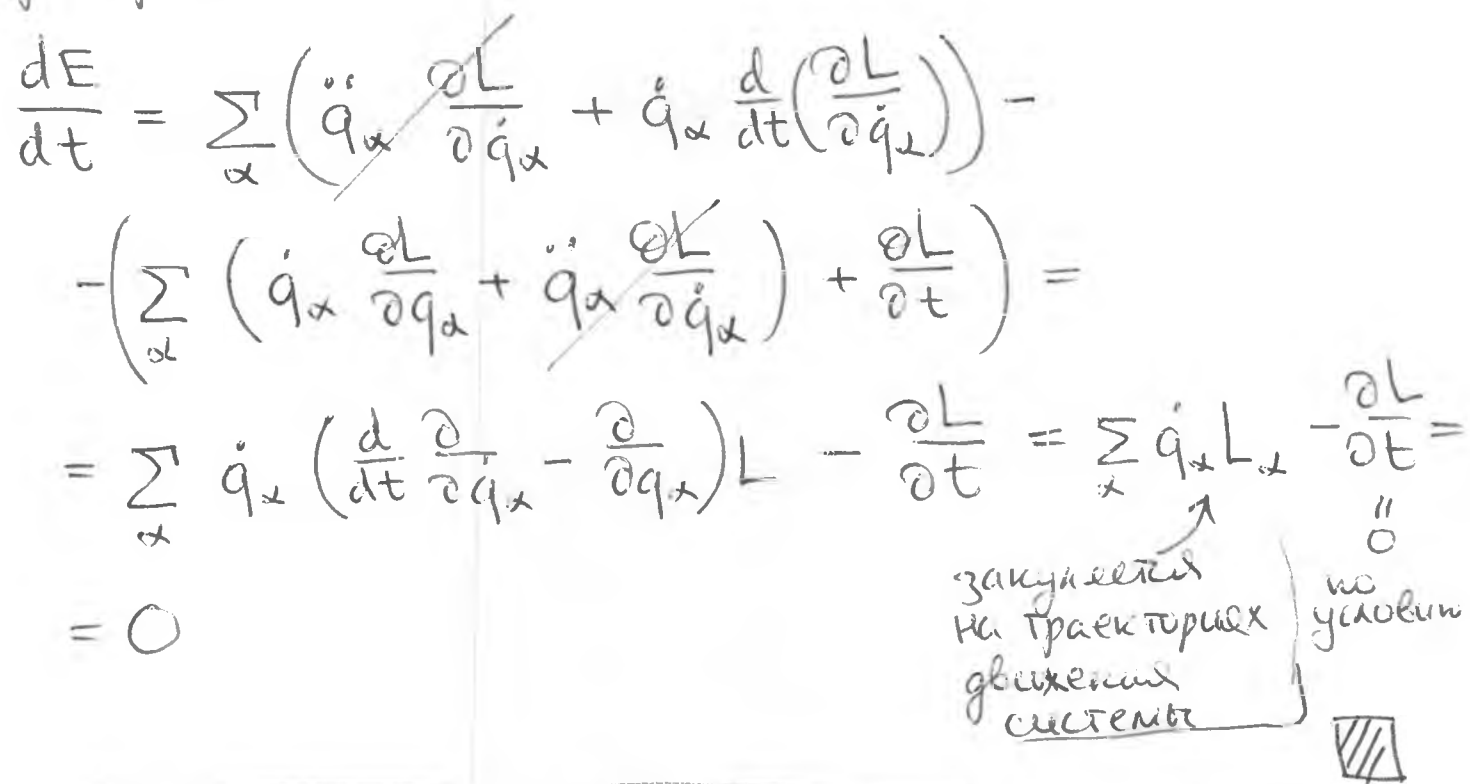 dE/dt = Σ_α ( q̈_α ∂L/∂q̇_α + q̇_α d/dt (∂L/∂q̇_α) ) −
− ( Σ_α ( q̇_α ∂L/∂q_α + q̈_α ∂L/∂q̇_α ) + ∂L/∂t ) =
= Σ_α q̇_α ( d/dt ∂/∂q̇_α − ∂/∂q_α ) L − ∂L/∂t = Σ_α q̇_α L_α − ∂L/∂t =
"
0
= 0
зануляется
на траекториях
движения
системы
по
условию